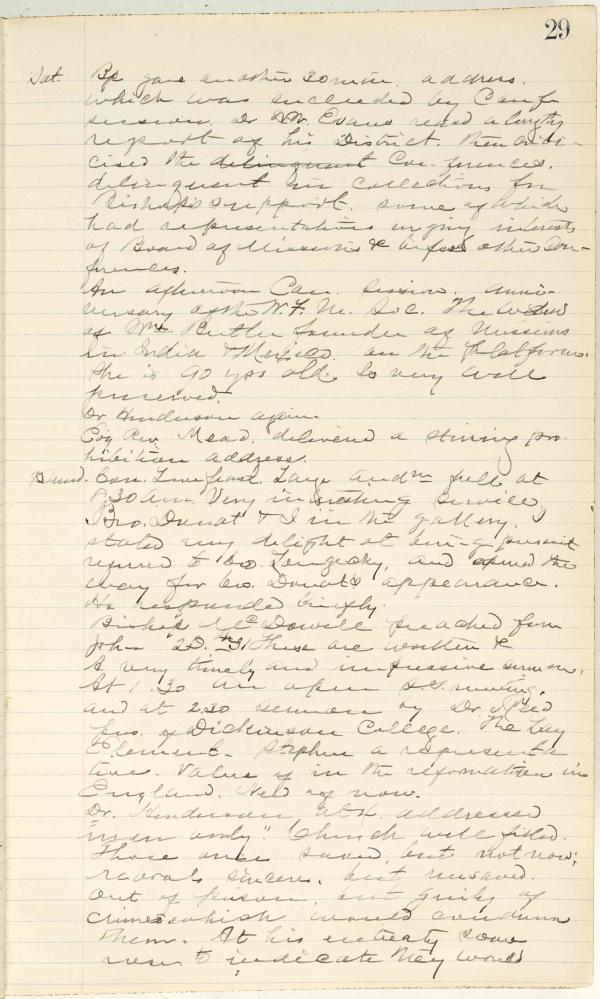 29
Sat. Bp gave another 30 min. address.
which was succeeded by Conf
session. Dr Evans read a lengthy
report of his District. Then criti-
cised the delinquent Con-ferences.
delinquent in collections for
Bishop's support. some of which
had representatives urging interests
of Board of Missions & other Con-
ferences.
An afternoon Con. session. Anni-
versary of the W.F.M. Soc. The widow
of Wm Butler founder of Missions
in India & Mexico. on the platform.
She is 90 yrs old. Is very well
preserved.
Dr Henderson again.
Rev. Mead. delivered a stirring pro-
hibition address.
Sund. Con. Lovefeast. Large Audm full at
8.30 am. Very interesting service
Bro. Donat & I in the gallery. I
stated my delight at being present
referred to bro. and opened the
way for bro. Donat's appearance.
He responded briefly.
Bishop McDowell preached from
John "20. 31 These are written &
A very timely and impressive sermon.
At 1.30 an open meeting.
and at 2.30 sermon by Dr. Reed
pres. of Dickinson College. The Lay
Element. Stephen a representa
tive. Value of in the reformation in
England. Need of now.
Dr. Henderson at 4. addressed
"men only". Church well filled.
Those once saved, but not now;
several sincere. but unsaved.
Out of prison, but guilty of
crimes which would condemn
them. At his entreaty some
rose to indicate they would